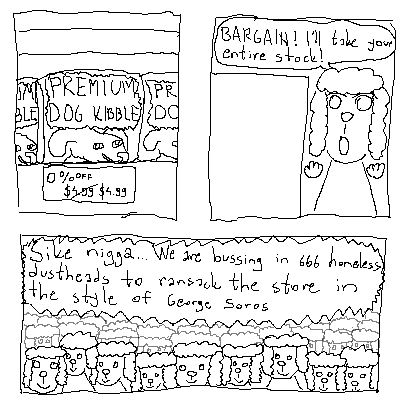 PREMIUM
DOG KIBBLE
M
BLE
PR
DO
0% OFF
$4.99 $4.99
BARGAIN! I'll take your
entire stock!
Sike nigga... We are bussing in 666 homeless
dustheads to ransack the store in
the style of George Soros